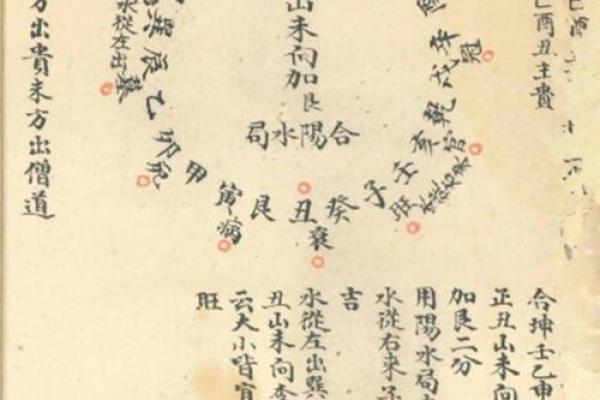 巳酉丑主貴
山未向加艮
合陽水局
冠
辛戌乾亥官
壬旺
子
癸
丑衰
艮
寅病
甲
卯死
乙
辰墓
巽
水從左出
方出貴未方出僧道
合坤壬乙申
正丑山未向
加艮二分
用陽水局
水從右來
吉
水從左出巽
丑山未向
云大小皆宜
旺